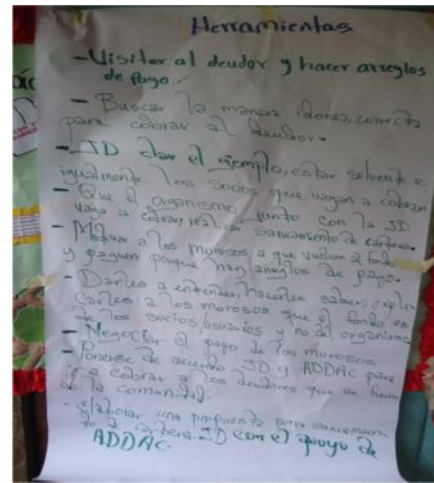 Herramientas
- Visitar al deudor y hacer arreglos
de pago.
- Buscar la manera idonea, correcta
para cobrar al deudor.
- JD dar el ejemplo, estar solvente e
igualmente los socios que vayan a cobrar
- Que el organismo junto con la JD
vaya a cobrar, realizar saneamiento de cartera.
- Motivar a los morosos a que vuelvan al fondo
y paguen porque hay arreglos de pago.
- Darles a entender, hacerles saber, explicarles
a los morosos que el fondo es
de los socios/usuarios y no del organismo
- Negociar el pago de los morosos
- Ponerse de acuerdo JD y ADDAC para
ir a cobrar a los deudores que se fueron
de la comunidad.
- Elaborar una propuesta para saneamien
to de cartera JD con el apoyo de
ADDAC